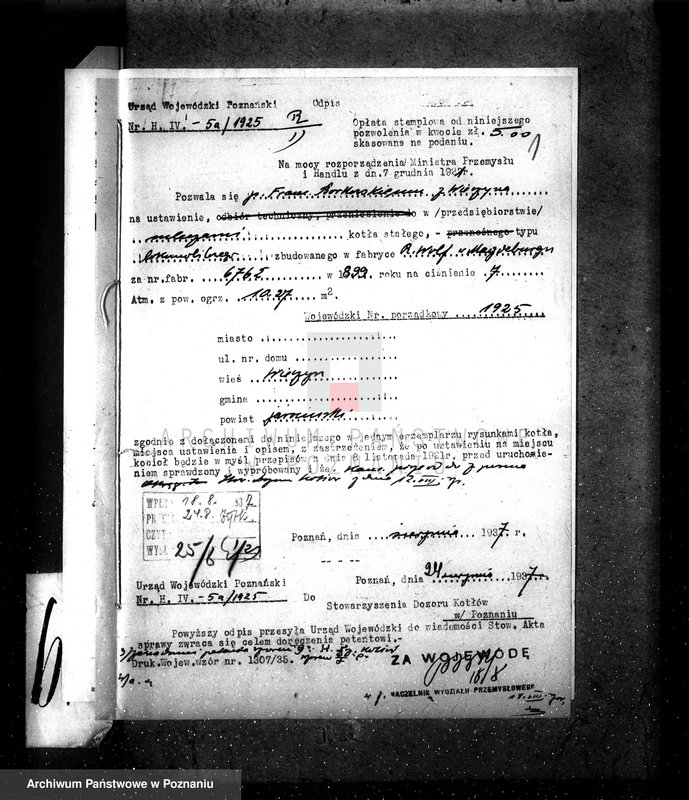 Urząd Wojewódzki Poznański Odpis
Nr. H. IV. - 5a/1925
Opłata stemplowa od niniejszego
pozwolenia w kwocie zł. 5.00
skasowane na podaniu.
1
Na mocy rozporządzenia Ministra Przemysłu
i Handlu z dn. 7 grudnia 1927r.
Pozwala się p. Franc.
na ustawienie, odbiór techniczny, przeniesienie do w /przedsiębiorstwie/
kotła stałego, - przenośnego typu
zbudowanego w fabryce R. Wolf. Magdeburgu
za nr.fabr. 6762 w 1899. roku na ciśnienie 7
Atm. z pow. ogrz. 10.27 m2.
Wojewódzki Nr. porządkowy 1925
miasto
ul. nr. domu
wieś
gmina
powiat
ARCHIWUM PAŃSTWOWE
W POZNANIU
zgodnie z dołączonemi do niniejszego w jednym egzemplarzu rysunkami kotła,
miejsca ustawienia i opisem, z zastrzeżeniem, że po ustawieniu na miejscu
kocioł będzie w myśl przepisów z dnia 6 listopada 1921r. przed uruchomie-
niem sprawdzony i wypróbowany i że/
WPŁ 18.8. 937
24.8.
WYSŁ 25/8
Poznań, dnia sierpnia 1937. r.
Urząd Wojewódzki Poznański
Nr. H. IV. - 5a/1925
Poznań, dnia 24 sierpnia 1937 r.
Do
Stowarzyszenia Dozoru Kotłów
w/ Poznaniu
Powyższy odpis przesyła Urząd Wojewódzki do wiadomości Stow. Akta
sprawy zwraca się celem doręczenia petentowi.-
Druk.Wojew.wzór nr. 1307/35.
ZA WOJEWODĘ
18/8
NACZELNIK WYDZIAŁU PRZEMYSŁOWEGO
6
Archiwum Państwowe w Poznaniu